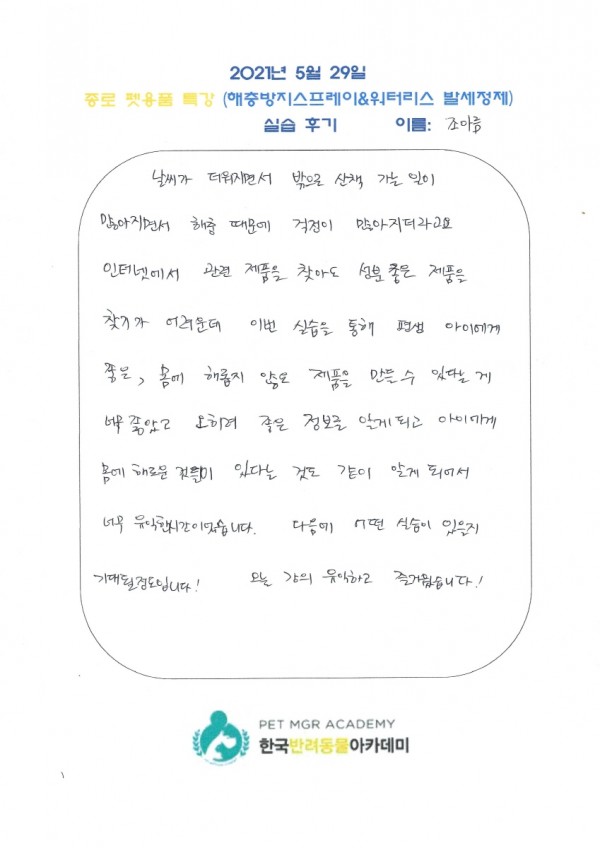 2021년 5월 29일
종로 펫용품 특강 (해충방지스프레이&워터리스 발세정제)
실습 후기 이름: 조아름
날씨가 더워지면서 밖으로 산책 가는 일이
많아지면서 해충 때문에 걱정이 많아지더라고요
인터넷에서 관련 제품을 찾아도 성분 좋은 제품을
찾기가 어려운데 이번 실습을 통해 평생 아이에게
좋은, 몸에 해롭지 않은 제품을 만들 수 있다는 게
너무 좋았고 오히려 좋은 정보를 알게 되고 아이에게
몸에 해로운 것들이 있다는 것도 같이 알게 되어서
너무 유익한시간이었습니다. 다음에 어떤 실습이 있을지
기대될정도입니다! 오늘 강의 유익하고 즐거웠습니다!
PET MGR ACADEMY
한국반려동물아카데미